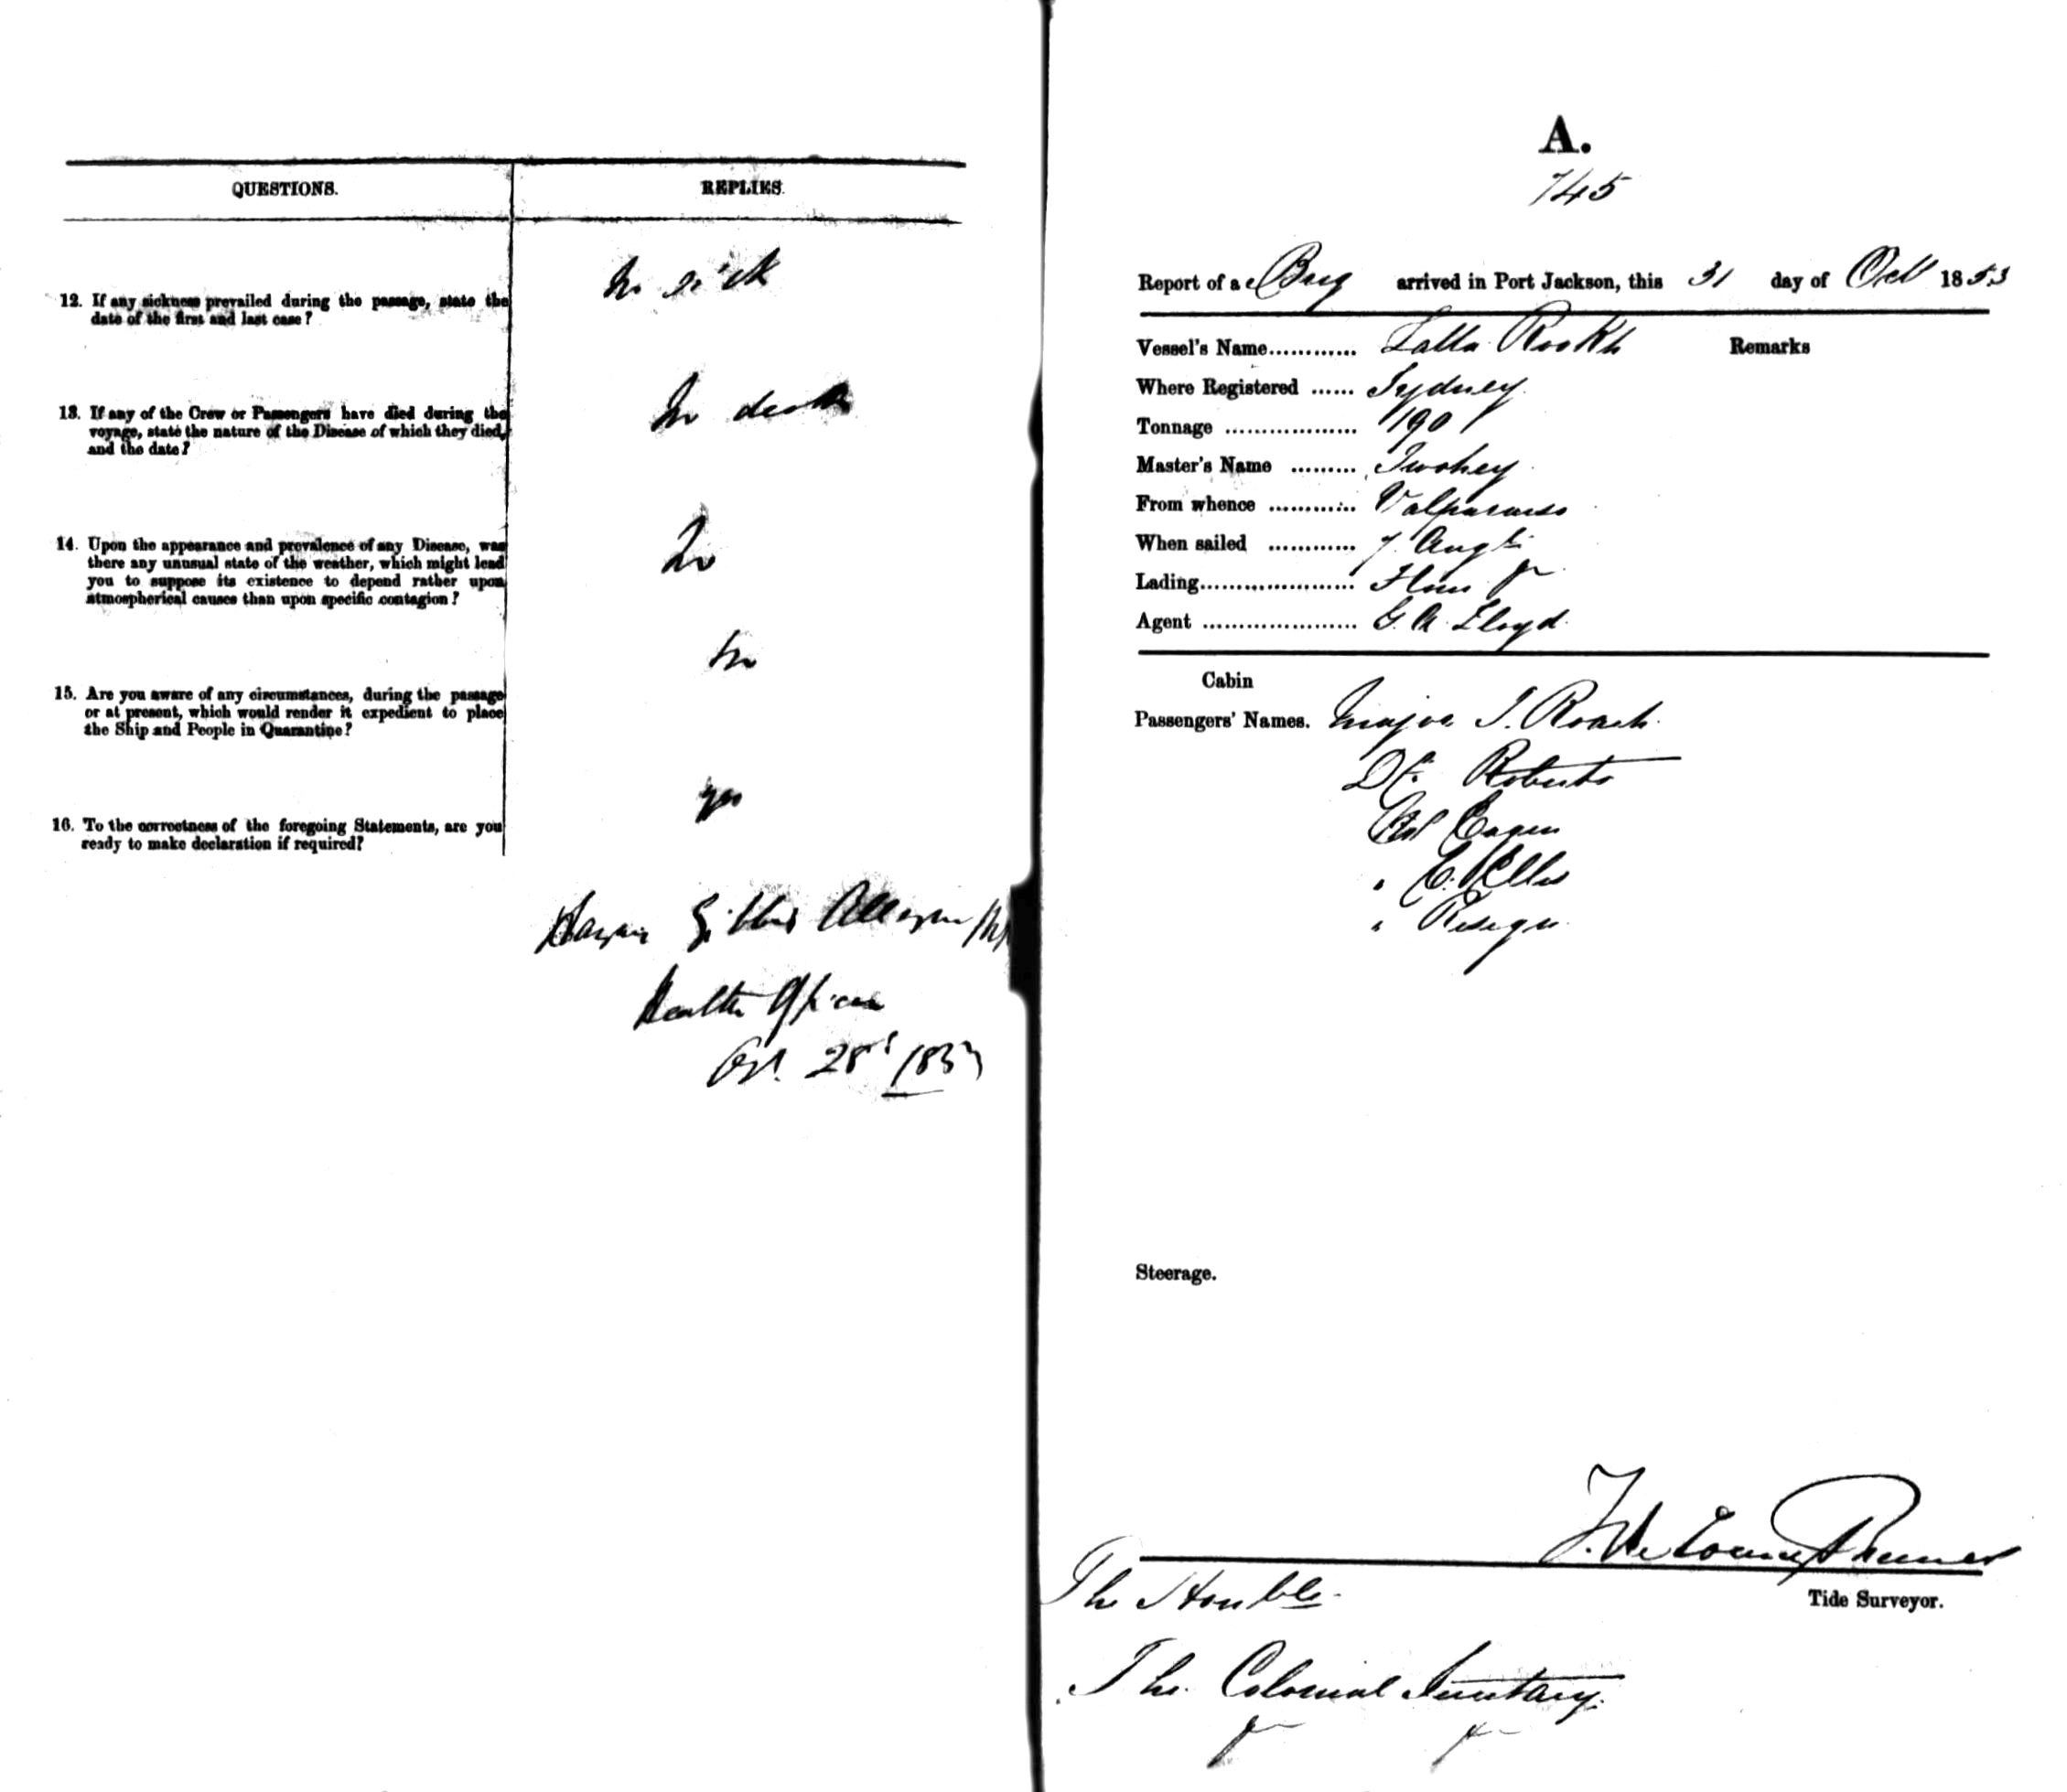 QUESTIONS.
REPLIES.
12. If any sickness prevailed during the passage, state the
date of the first and last case?
No sick
13. If any of the Crew or Passengers have died during the
voyage, state the nature of the Disease of which they died,
and the date?
No death
14. Upon the appearance and prevalence of any Disease, was
there any unusual state of the weather, which might lead
you to suppose its existence to depend rather upon
atmospherical causes than upon specific contagion?
No
15. Are you aware of any circumstances, during the passage
or at present, which would render it expedient to place
the Ship and People in Quarantine?
No
16. To the correctness of the foregoing Statements, are you
ready to make declaration if required?
yes
Haynes Gibbes Alleyne
Health Officer
28 1853
A.
745
Report of a Brig arrived in Port Jackson, this 31 day of Oct 1853
Vessel's Name............ Lalla Rookh Remarks
Where Registered ...... Sydney
Tonnage .................. 190
Master's Name ......... Twohey
From whence ............ Valparaiso
When sailed ............ 7 Augt
Lading..................... Flour
Agent ..................... G. A. Lloyd
Cabin
Passengers' Names. Major I. Roach
Dr. Roberts
Eagen
" E. Ellis
"
Steerage.
Tide Surveyor.
The Honble.
The Colonial Secretary